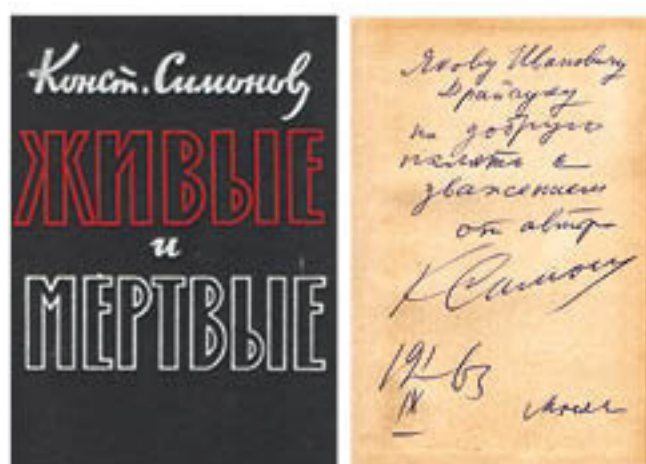 Конст. Симонов
ЖИВЫЕ
и
МЕРТВЫЕ
Якову Ивановичу
Драйчуку
на добрую
память с
уважением
от автора
К Симонов
19 63
IX